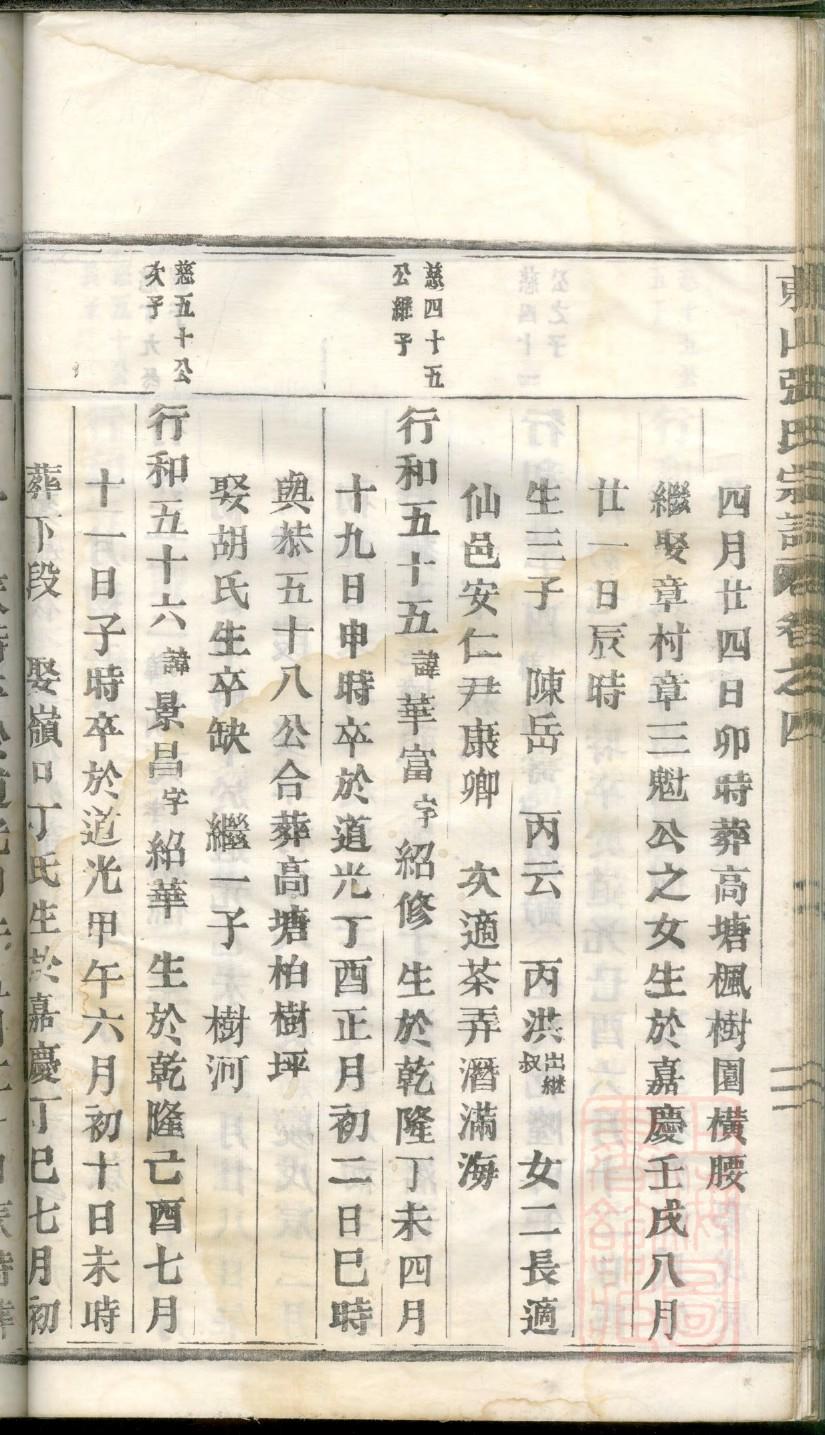 東山張氏宗譜卷之四
四月廿四日卯時葬高塘楓樹園橫腰
繼娶章村章三魁公之女生於嘉慶壬戌八月
廿一日辰時
生三子 陳岳 丙云 丙洪出継叔 女二長適
仙邑安仁尹康卿 次適茶弄潛滿海
慈四十五公継子
行和一百五十五諱華富字紹修生於乾隆丁未四月
十九日申時卒於道光丁酉正月初二日巳時
與恭五十八公合葬高塘柏樹坪
娶胡氏生卒缺 繼一子 樹河
慈五十公次子
行和一百五十六諱景昌字紹華 生於乾隆己酉七月
十一日子時卒於道光甲午六月初十日未時
葬下段 娶嶺口丁氏生於嘉慶丁巳七月初